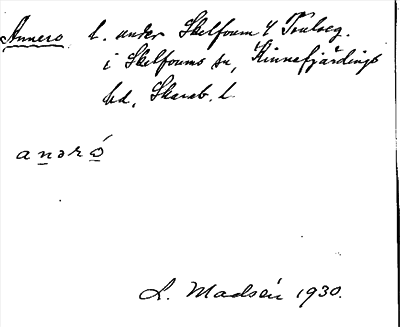 Annero l. under Skelfoum 4 Toulseg.
i Skelfoums sn, Kinnefjärdings
hd, Skarab. l.
anərὼ
L. Madsén 1930.